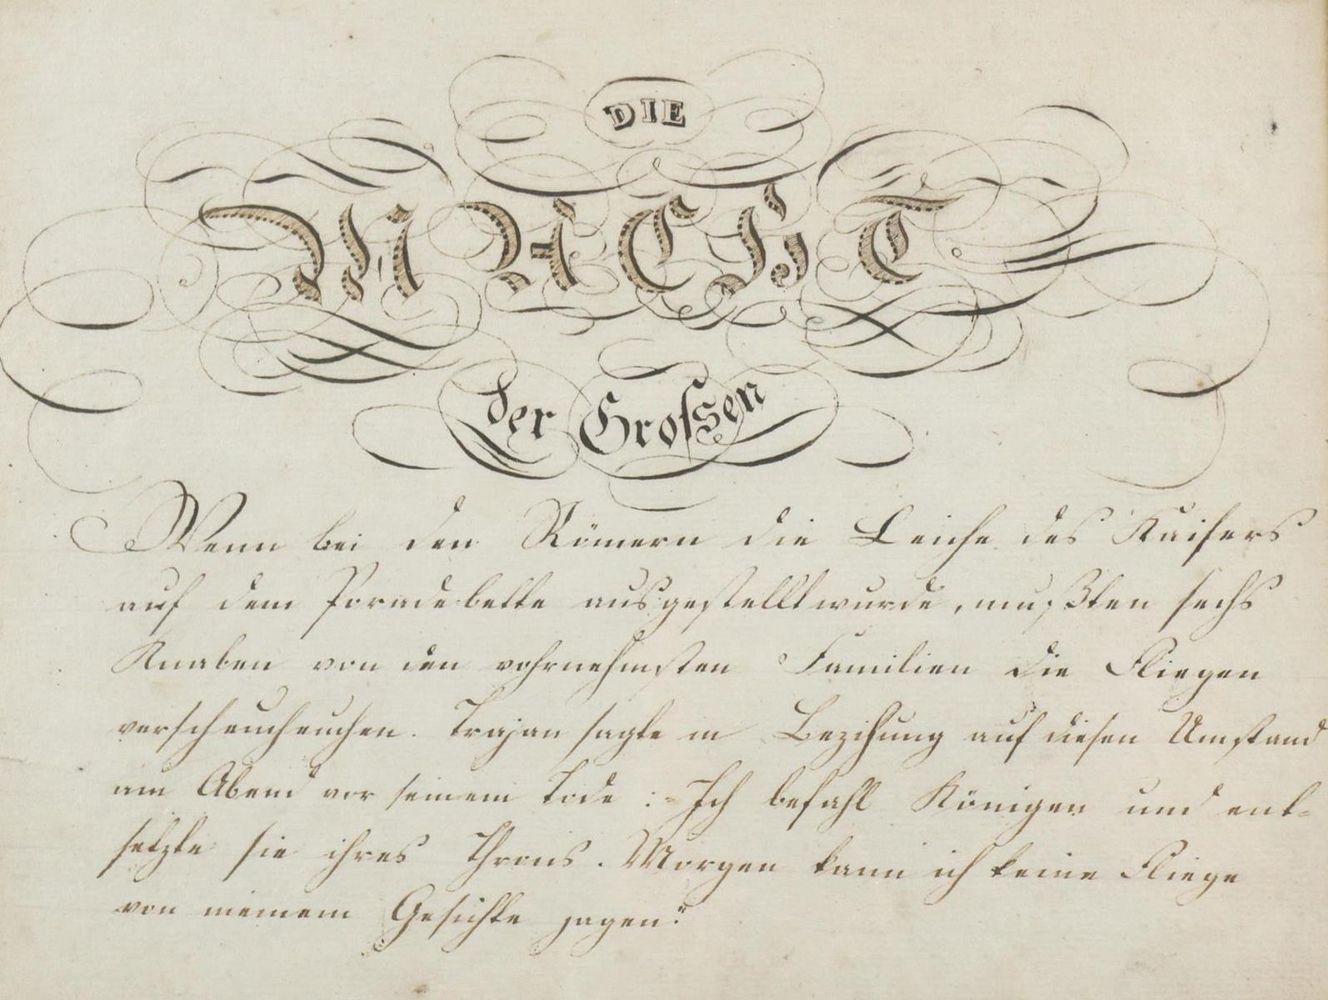 DIE
MACHT
der Grossen
Wenn bei den Römern die Leiche des Kaisers
auf dem Paradebette ausgestellt wurde, mußten sechs
Knaben von den vohrnehmsten Familien die Fliegen
verscheucheuchen. Trajan sagte in Beziehung auf diesen Umstand
am Abend vor seinem Tode :- Ich befahl Königen und ent-
setzte sie ihres Throns. Morgen kann ich keine Fliege
von meinem Gesichte jagen."